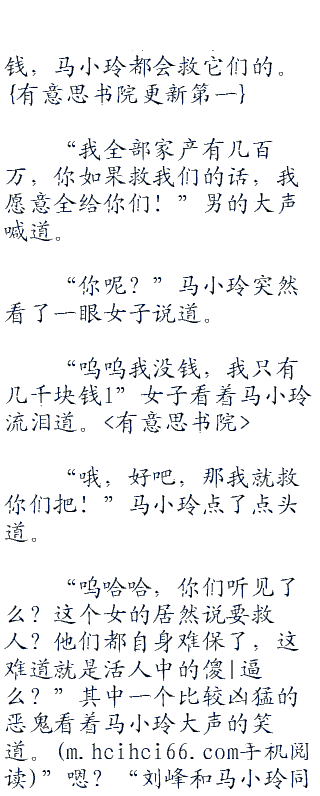 钱，马小玲都会救它们的。
{有意思书院更新第一}
“我全部家产有几百
万，你如果救我们的话，我
愿意全给你们！”男的大声
喊道。
“你呢？”马小玲突然
看了一眼女子说道。
“呜呜我没钱，我只有
几千块钱1”女子看着马小玲
流泪道。<有意思书院>
“哦，好吧，那我就救
你们把！”马小玲点了点头
道。
“呜哈哈，你们听见了
么？这个女的居然说要救
人？他们都自身难保了，这
难道就是活人中的傻|逼
么？”其中一个比较凶猛的
恶鬼看着马小玲大声的笑
道。(m.hcihci66.com手机阅
读)”嗯？“刘峰和马小玲同